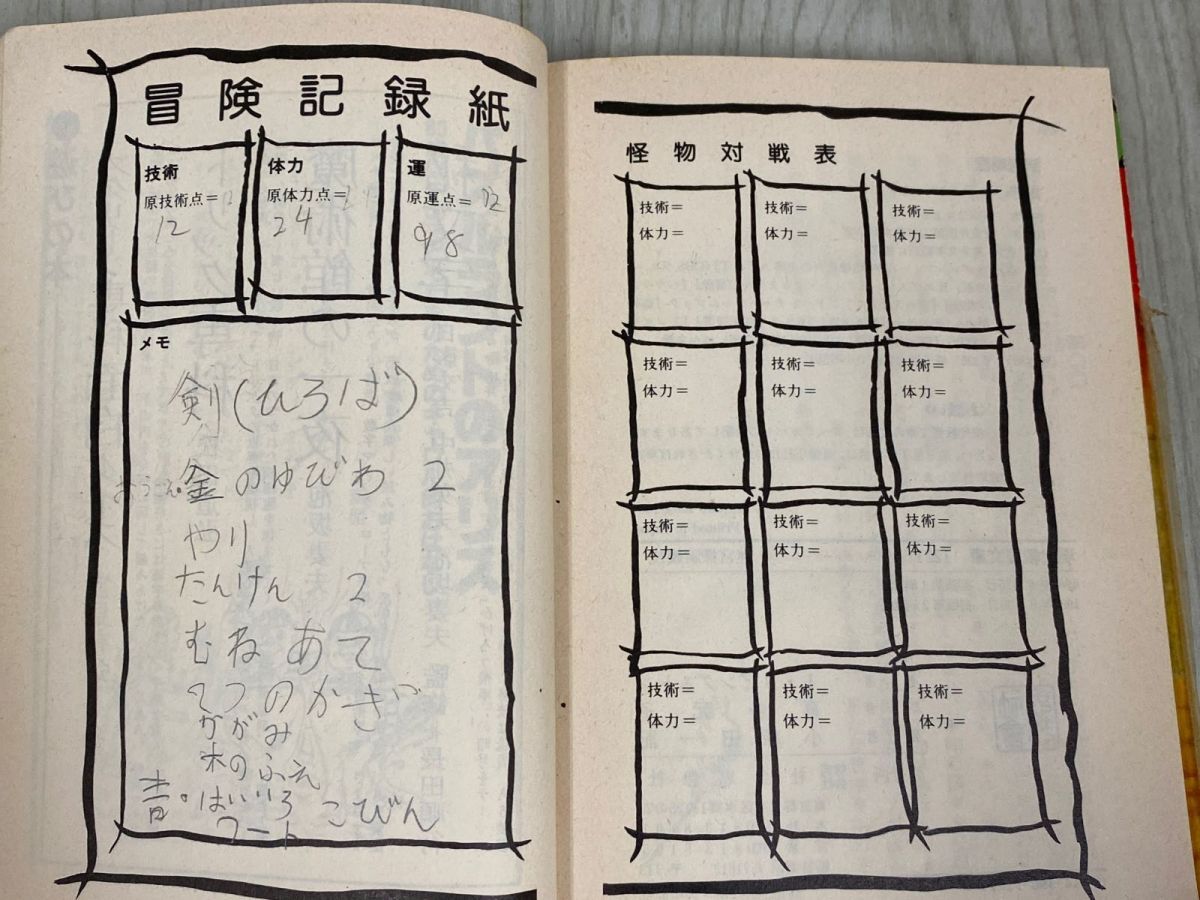 冒険記録紙
技術
原技術点=12
12
体力
原体力点=
24
運
原運点=12
98
メモ
剣(ひろば)
金のゆびわ 2
やり
たんけん 2
むねあて
てつのかぎ
かがみ
木のふえ
青・はいいろ こびん
コート
怪物対戦表
技術= 技術= 技術=
体力= 体力= 体力=
技術= 技術= 技術=
体力= 体力= 体力=
技術= 技術= 技術=
体力= 体力= 体力=
技術= 技術= 技術=
体力= 体力= 体力=